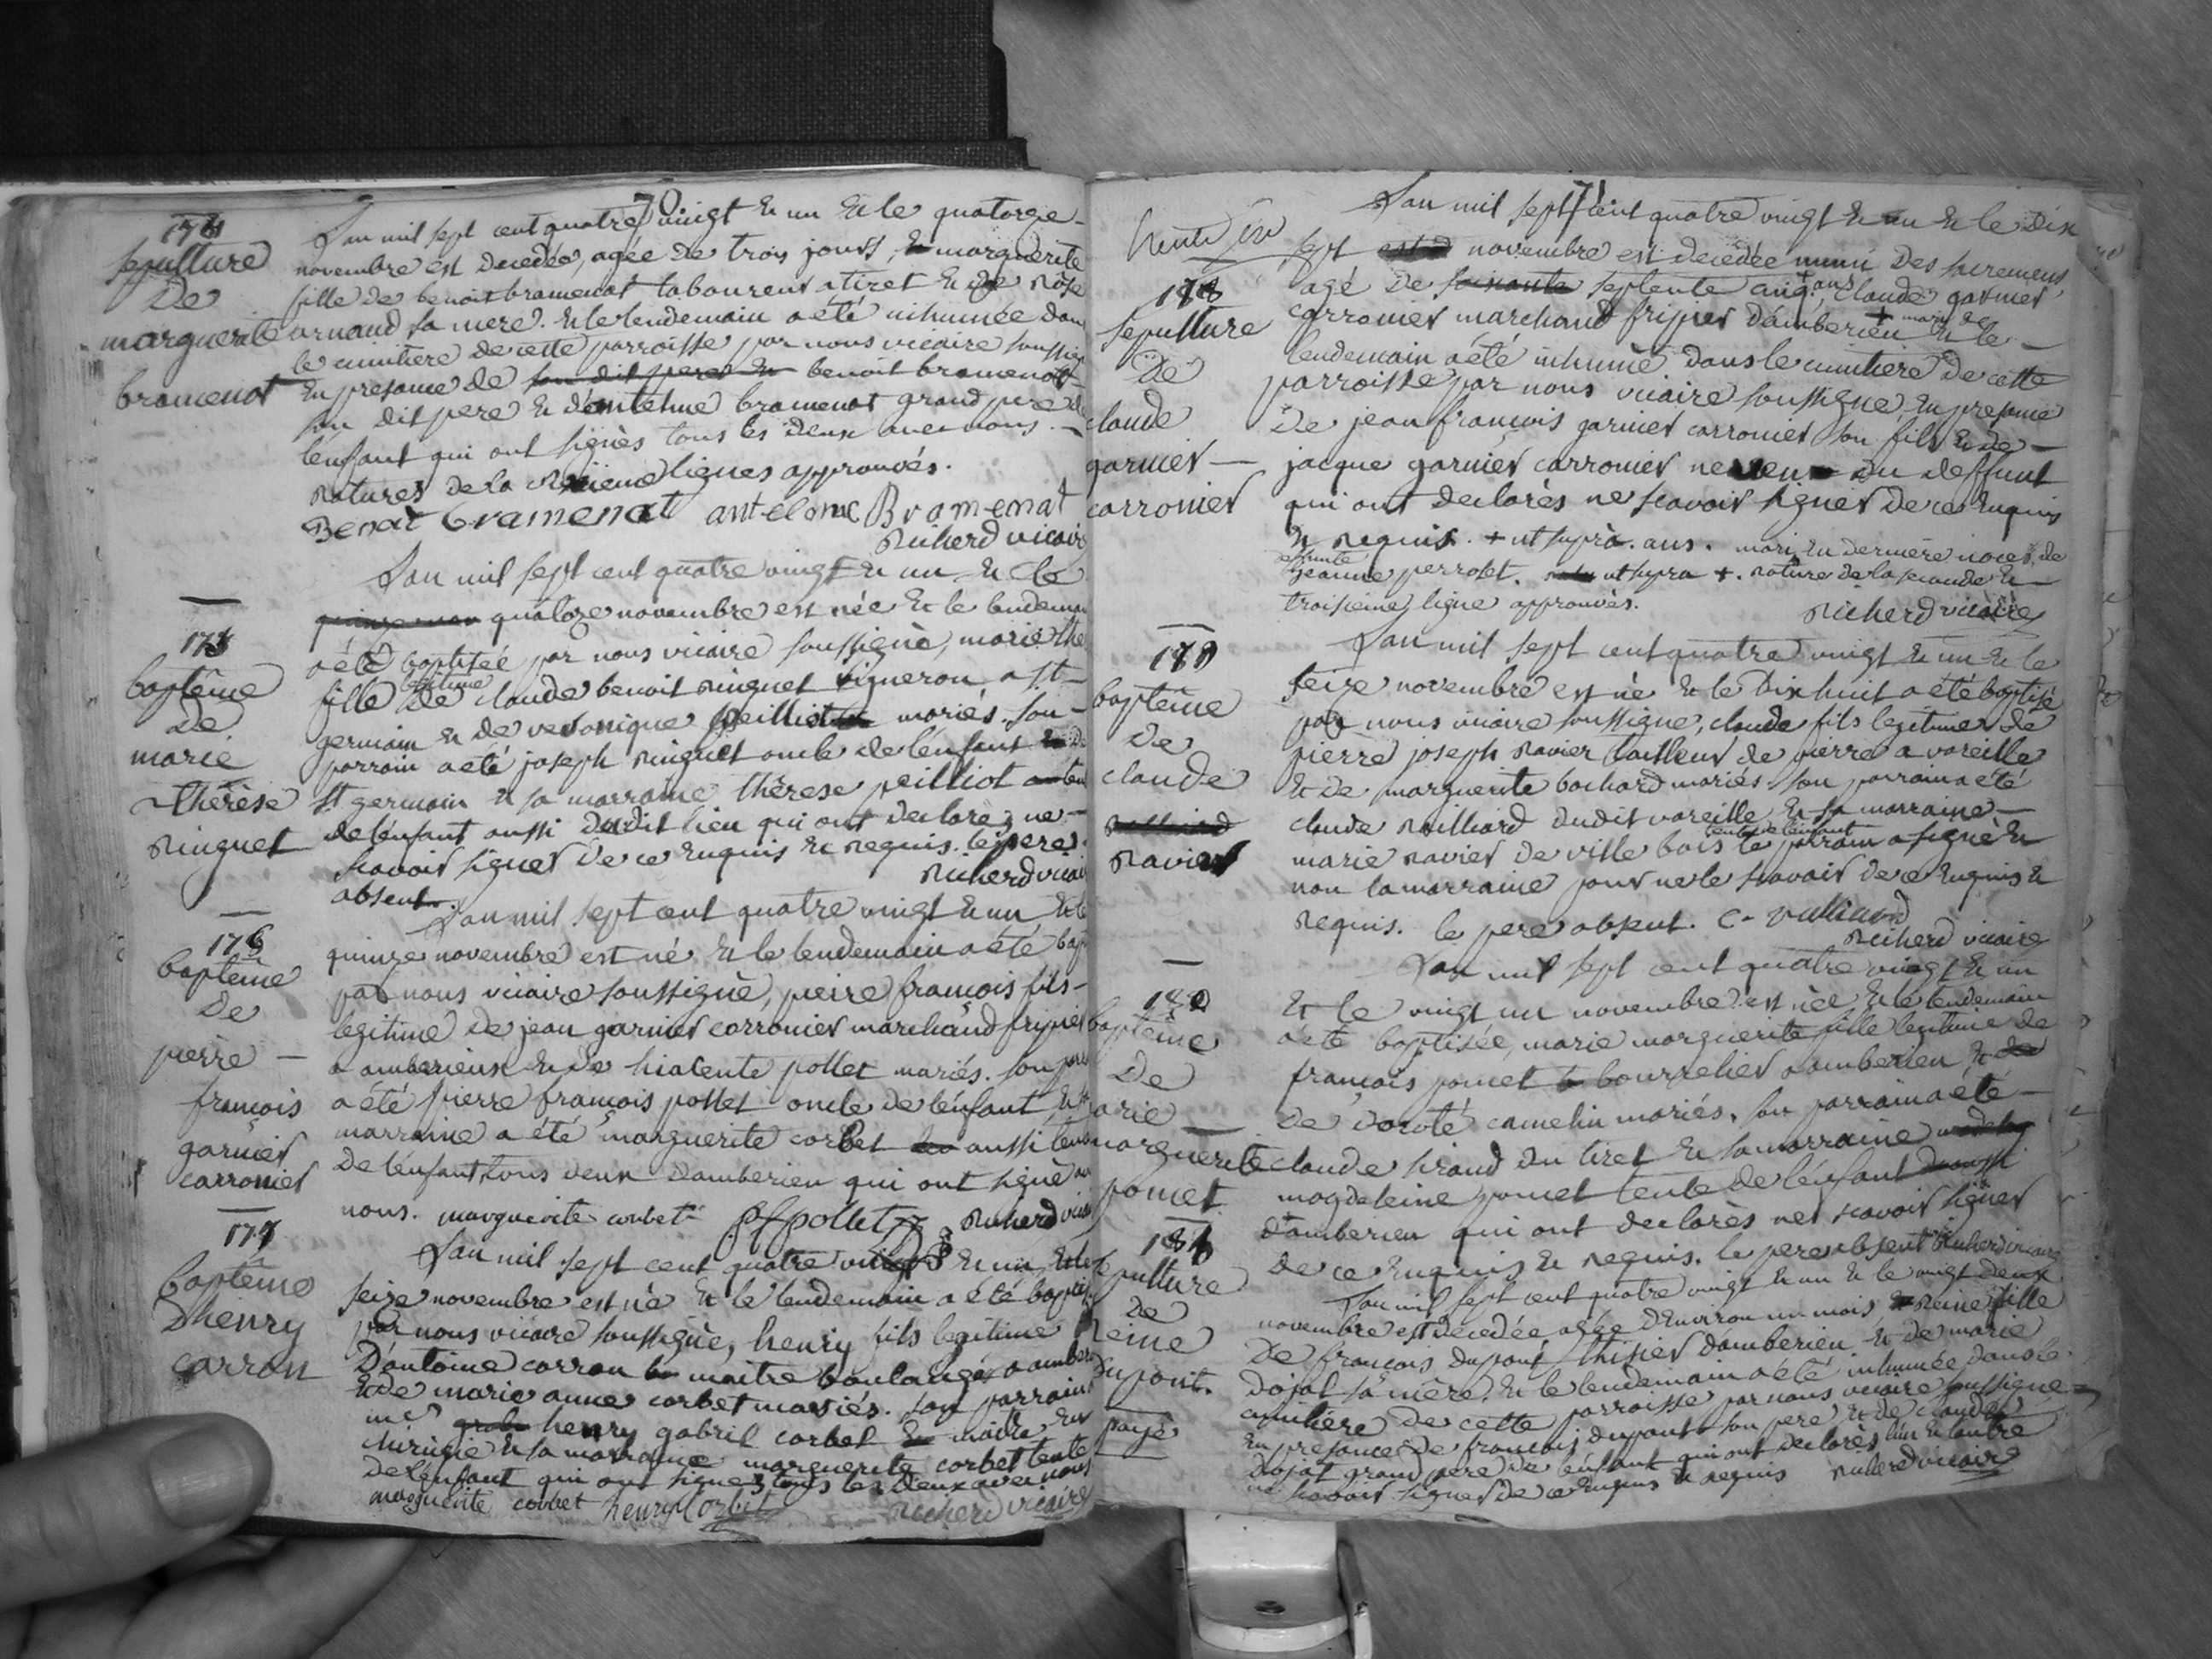 70
174
sepulture
De
marguerite
bramenat
L'an mil sept cent quatre vingt & un & le quatorze
novembre est decedée, agée de trois jours, marguerite
fille de benoit bramenat laboureur a tiret & de Rose
arnaud sa mere. & le lendemain a été inhumée dans
le cimitiere de cette parroisse par nous vicaire soussigné
En presance de son dit pere & benoit bramenat
son dit pere & d'antelme bramenat grand pere de
l'enfant qui ont signés tous les deux avec nous.
ratures de la lignes approuvés.
Benoit bramenat antelme Bramenat
Richerd vicaire
175
baptême
de
marie
Thérèse
Ringuet
L'an mil sept cent quatre vingt & un & le
quatorze novembre est née & le lendemain
a été baptisée par nous vicaire soussigné, marie the
fille legitime de claude benoit ringuet vigneron a st
germain & de veronique peilliot mariés. son
parrain a été joseph ringuet oncle de l'enfant de
st germain & sa marraine thérese peilliot tente
de l'enfant aussi dudit lieu qui ont declaré ne
scavoir signer de ce Enquis & requis. le pere
absent. Richerd vicaire
176
baptême
De
pierre
françois
garnier
carronier
L'an mil sept cent quatre vingt & un & le
quinze novembre est né & le lendemain a été bap
par nous vicaire soussigné, pierre françois fils
legitime de jean garnier carronier marchand fripier
a amberieux & de hiacente pollet mariés. son par
a été pierre françois pollet oncle de l'enfant & sa
marraine a été marguerite corbet aussi tente
de l'enfant tous deux d'amberieu qui ont signé avec
nous. marguerite corbet pfpollet Richerd vicaire
177
baptême
D'henry
carron
L'an mil sept cent quatre vingt & un & le
seize novembre est né & le lendemain a été baptisé
par nous vicaire soussigné, henry fils legitime
D'antoine carron maitre boulanger a amberieu
& de marie anne corbet mariés. son parrain
henry gabriel corbet maitre En
chirurgie & sa marraine marguerite corbet tente
de l'enfant qui ont signés tous les deux avec nous
marguerite corbet henry Corbet Richerd vicaire
71
178
sepulture
De
claude
garnier
carronier
L'an mil sept cent quatre vingt & un & le dix
sept novembre est decedée muni des sacremens
agé de soixante septente cinq + ans, claude garnier
carronier marchand fripier d'amberieu + mari de & le
lendemain a été inhumé dans le cimitiere de cette
parroisse par nous vicaire soussigné, En presance
De jean françois garnier carronier son fils & de
jacque garnier carronier neveu du deffunt
qui ont declarés ne scavoir signer de ce Enquis
& requis. + ut supra. ans. mari En derniere noces de
jeanne perrolet. ut supra +. rature de la seconde &
troisieme ligne approuvés.
Richerd vicaire
179
baptême
de
claude
Ravier
L'an mil sept cent quatre vingt & un & le
seize novembre est né & le dix huit a été baptisé
par nous vicaire soussigné, claude fils legitime de
pierre joseph ravier tailleur de pierre a vareille
& de marguerite bochard mariés son parrain a été
claude dudit vareille & sa marraine
marie ravier de ville bois tente de l'enfant le parrain a signé &
non la marraine pour ne le scavoir de ce Enquis &
requis. le pere absent.
Richerd vicaire
180
baptême
De
marie
marguerite
pomet
L'an mil sept cent quatre vingt & un
& le vingt un novembre est née & le lendemain
a été baptisée, marie marguerite fille legitime de
françois pomet bourrelier a amberieu & de
de doroté camelin mariés, son parrain a été
claude siraud du tiret & sa marraine
magdeleine pomet tente de l'enfant
d'amberieu qui ont declarés ne scavoir signer
de ce Enquis & requis. le pere absent Richerd vicaire
181
sepulture
De
Reine
Dupont.
payé
L'an mil sept cent quatre vingt & un & le vingt deux
novembre est decedée, agée d'Environ un mois Reine fille
De françois dupont d'amberieu & de marie
Dojat sa mère. & le lendemain a été inhumée dans le
cimitiere de cette parroisse par nous vicaire soussigné
En presance de françois dupont son pere & de claude
Dojat grand pere de l'enfant qui ont declarés l'un & l'autre
ne scavoir signer de ce Enquis & requis Richerd vicaire